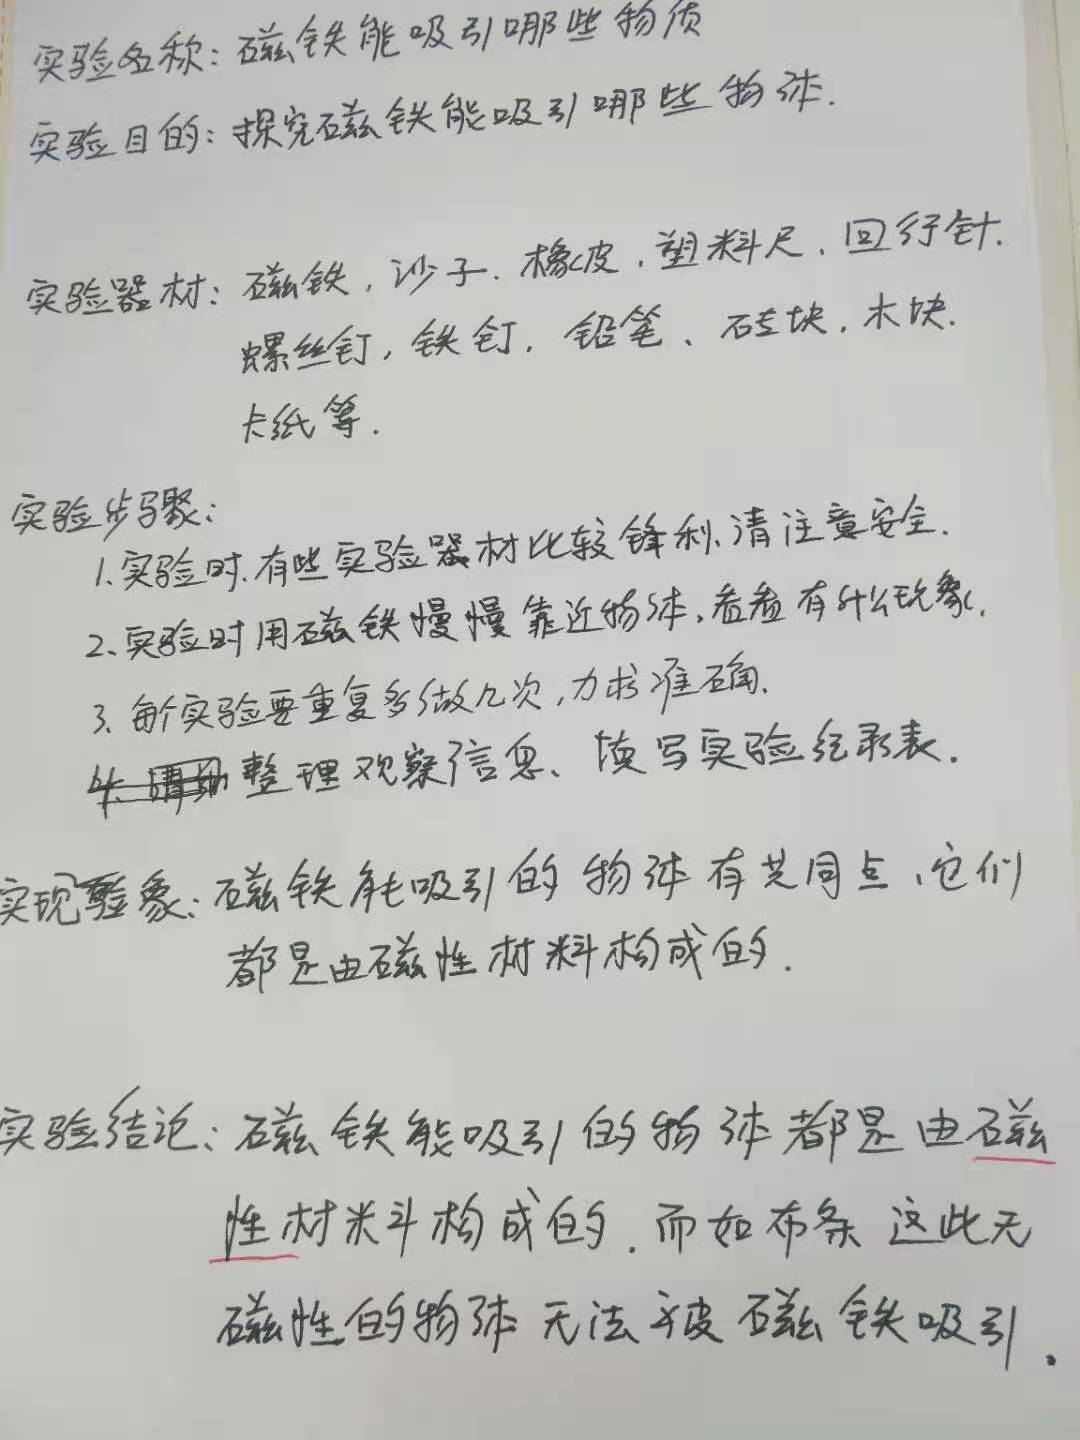 实验名称：磁铁能吸引哪些物质
实验目的：探究磁铁能吸引哪些物体.
实验器材：磁铁，沙子、橡皮，塑料尺，回行针.
螺丝钉，铁钉，铅笔、砖块，木块.
卡纸等.
实验步骤：
1.实验时,有些实验器材比较锋利,请注意安全.
2、实验时用磁铁慢慢靠近物体,看看有什么现象.
3、每个实验要重复多做几次,力求准确.
整理观察信息、填写实验纪录表.
实现验象：磁铁能吸引的物体有共同点,它们
都是由磁性材料构成的.
实验结论：磁铁能吸引的物体都是由磁
性材料构成的.而如布条这些无
磁性的物体无法被磁铁吸引.